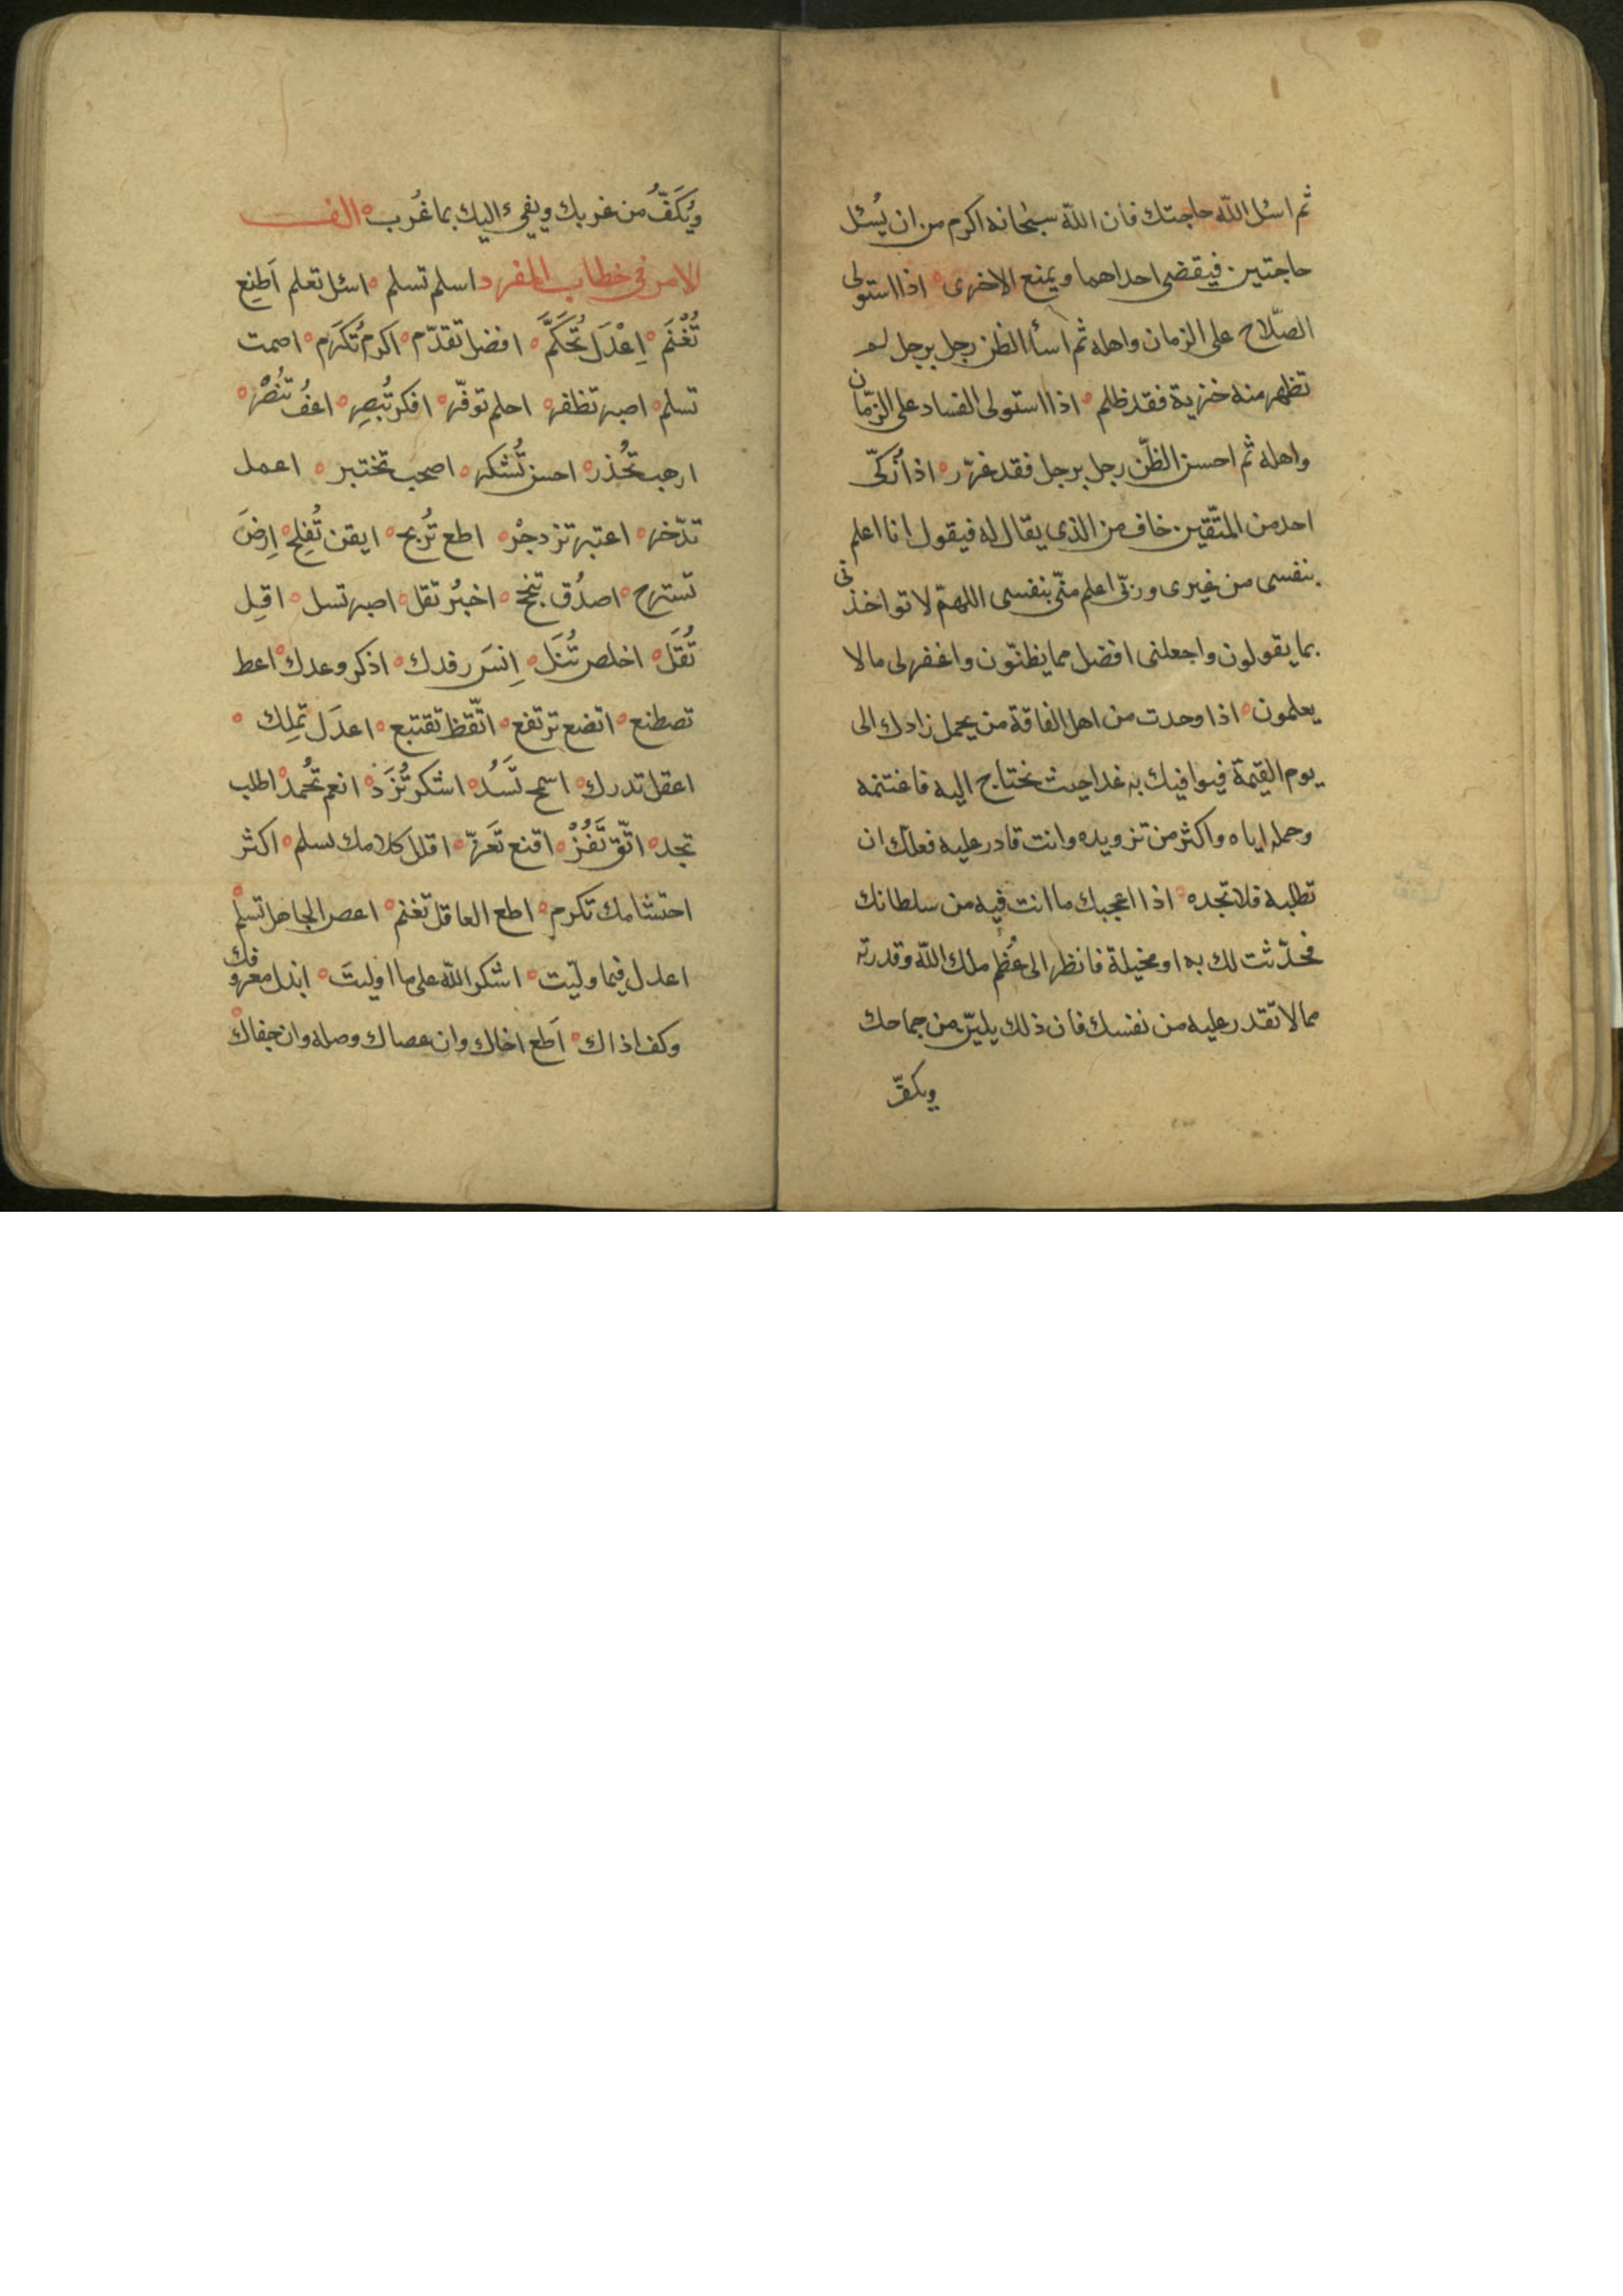 ثم اسئل الله حاجتك فان الله سبحانه اكرم من ان يُسئل
حاجتين فيقضى احداهما ويمنع الاخرى ۝ اذا استولى
الصّلاح على الزمان واهله ثم اسأ الظن رجل برجل لم
تظهر منه خزية فقد ظلم ۝ اذا استولى الفساد على الزمّان
واهله ثم احسن الظّن رجل برجل فقد غرّر ۝ اذا زُكّى
احد من المتّقين خاف من الذى يقال له فيقول انا اعلم
بنفسى من غيرى وربّى اعلم منّى بنفسى اللهمّ لا تواخذنى
بما يقولون واجعلنى افضل مما يظنّون واغفر لى ما لا
يعلمون ۝ اذا وحدت من اهل الفاقة من يحمل زادك الى
يوم القيمة فيوافيك به غدا حيث تحتاج اليه فاغتنمه
وحمله اياه واكثر من تزويده وانت قادر عليه فعلّك ان
تطلبه فلا تجده ۝ اذا اعجبك ما انت فيه من سلطانك
فحدّثت لك به او مخيلة فانظر الى عُظم ملك الله وقدرته
مما لا تقدر عليه من نفسك فان ذلك يليّن من جماحك
ويكفّ
ويُكَفُّ من غربك ويفىء اليك بما عُرب ۝ الف
الامر فى خطاب المفرد اسلم تسلم ۝ اسئل تعلم اَطِع
تُغْنَم ۝ اِعْدَل تُحَكَّم ۝ افضل تقدّم ۝ اكرم تُكرَم ۝ اصمت
تسلم ۝ اصبر تظفر ۝ احلم توقّر ۝ افكر تُبصِر ۝ اعفُ تُنصْر ۝
ارهب تُحذر ۝ احسن تُشكر ۝ اصحب تختبر ۝ اعمل
تدّخر ۝ اعتبر تزدجرْ ۝ اطع تُربح ۝ ايقن تُفلح ۝ اِرضَ
تستريح ۝ اصدُق تنجح ۝ اخبُر تقل ۝ اصبر تسل ۝ اقِل
تُقَل ۝ اخلص تُنَل ۝ اِنسَ رفدك ۝ اذكر وعدك ۝ اعط
تصطنع ۝ اتضع ترتفع ۝ اتّقظ تقتبع ۝ اعدَل تملِك ۝
اعقل تدرك ۝ اسمح تَسُد ۝ اشكر تُزَد ۝ انعم تُحمد ۝ اطلب
تجد ۝ اتّق تَفُزْ ۝ اقنع تَعزّ ۝ اقلل كلامك تسلم ۝ اكثر
احتشامك تكرم ۝ اطع العاقل تغنم ۝ اعص الجاهل تسلم ۝
اعدل فيما ولّيت ۝ اشكر الله على ما اوليتَ ۝ ابذل معروفك
وكف اذاك ۝ اَطع اخاك وان عصاك وصله وان جفاك ۝